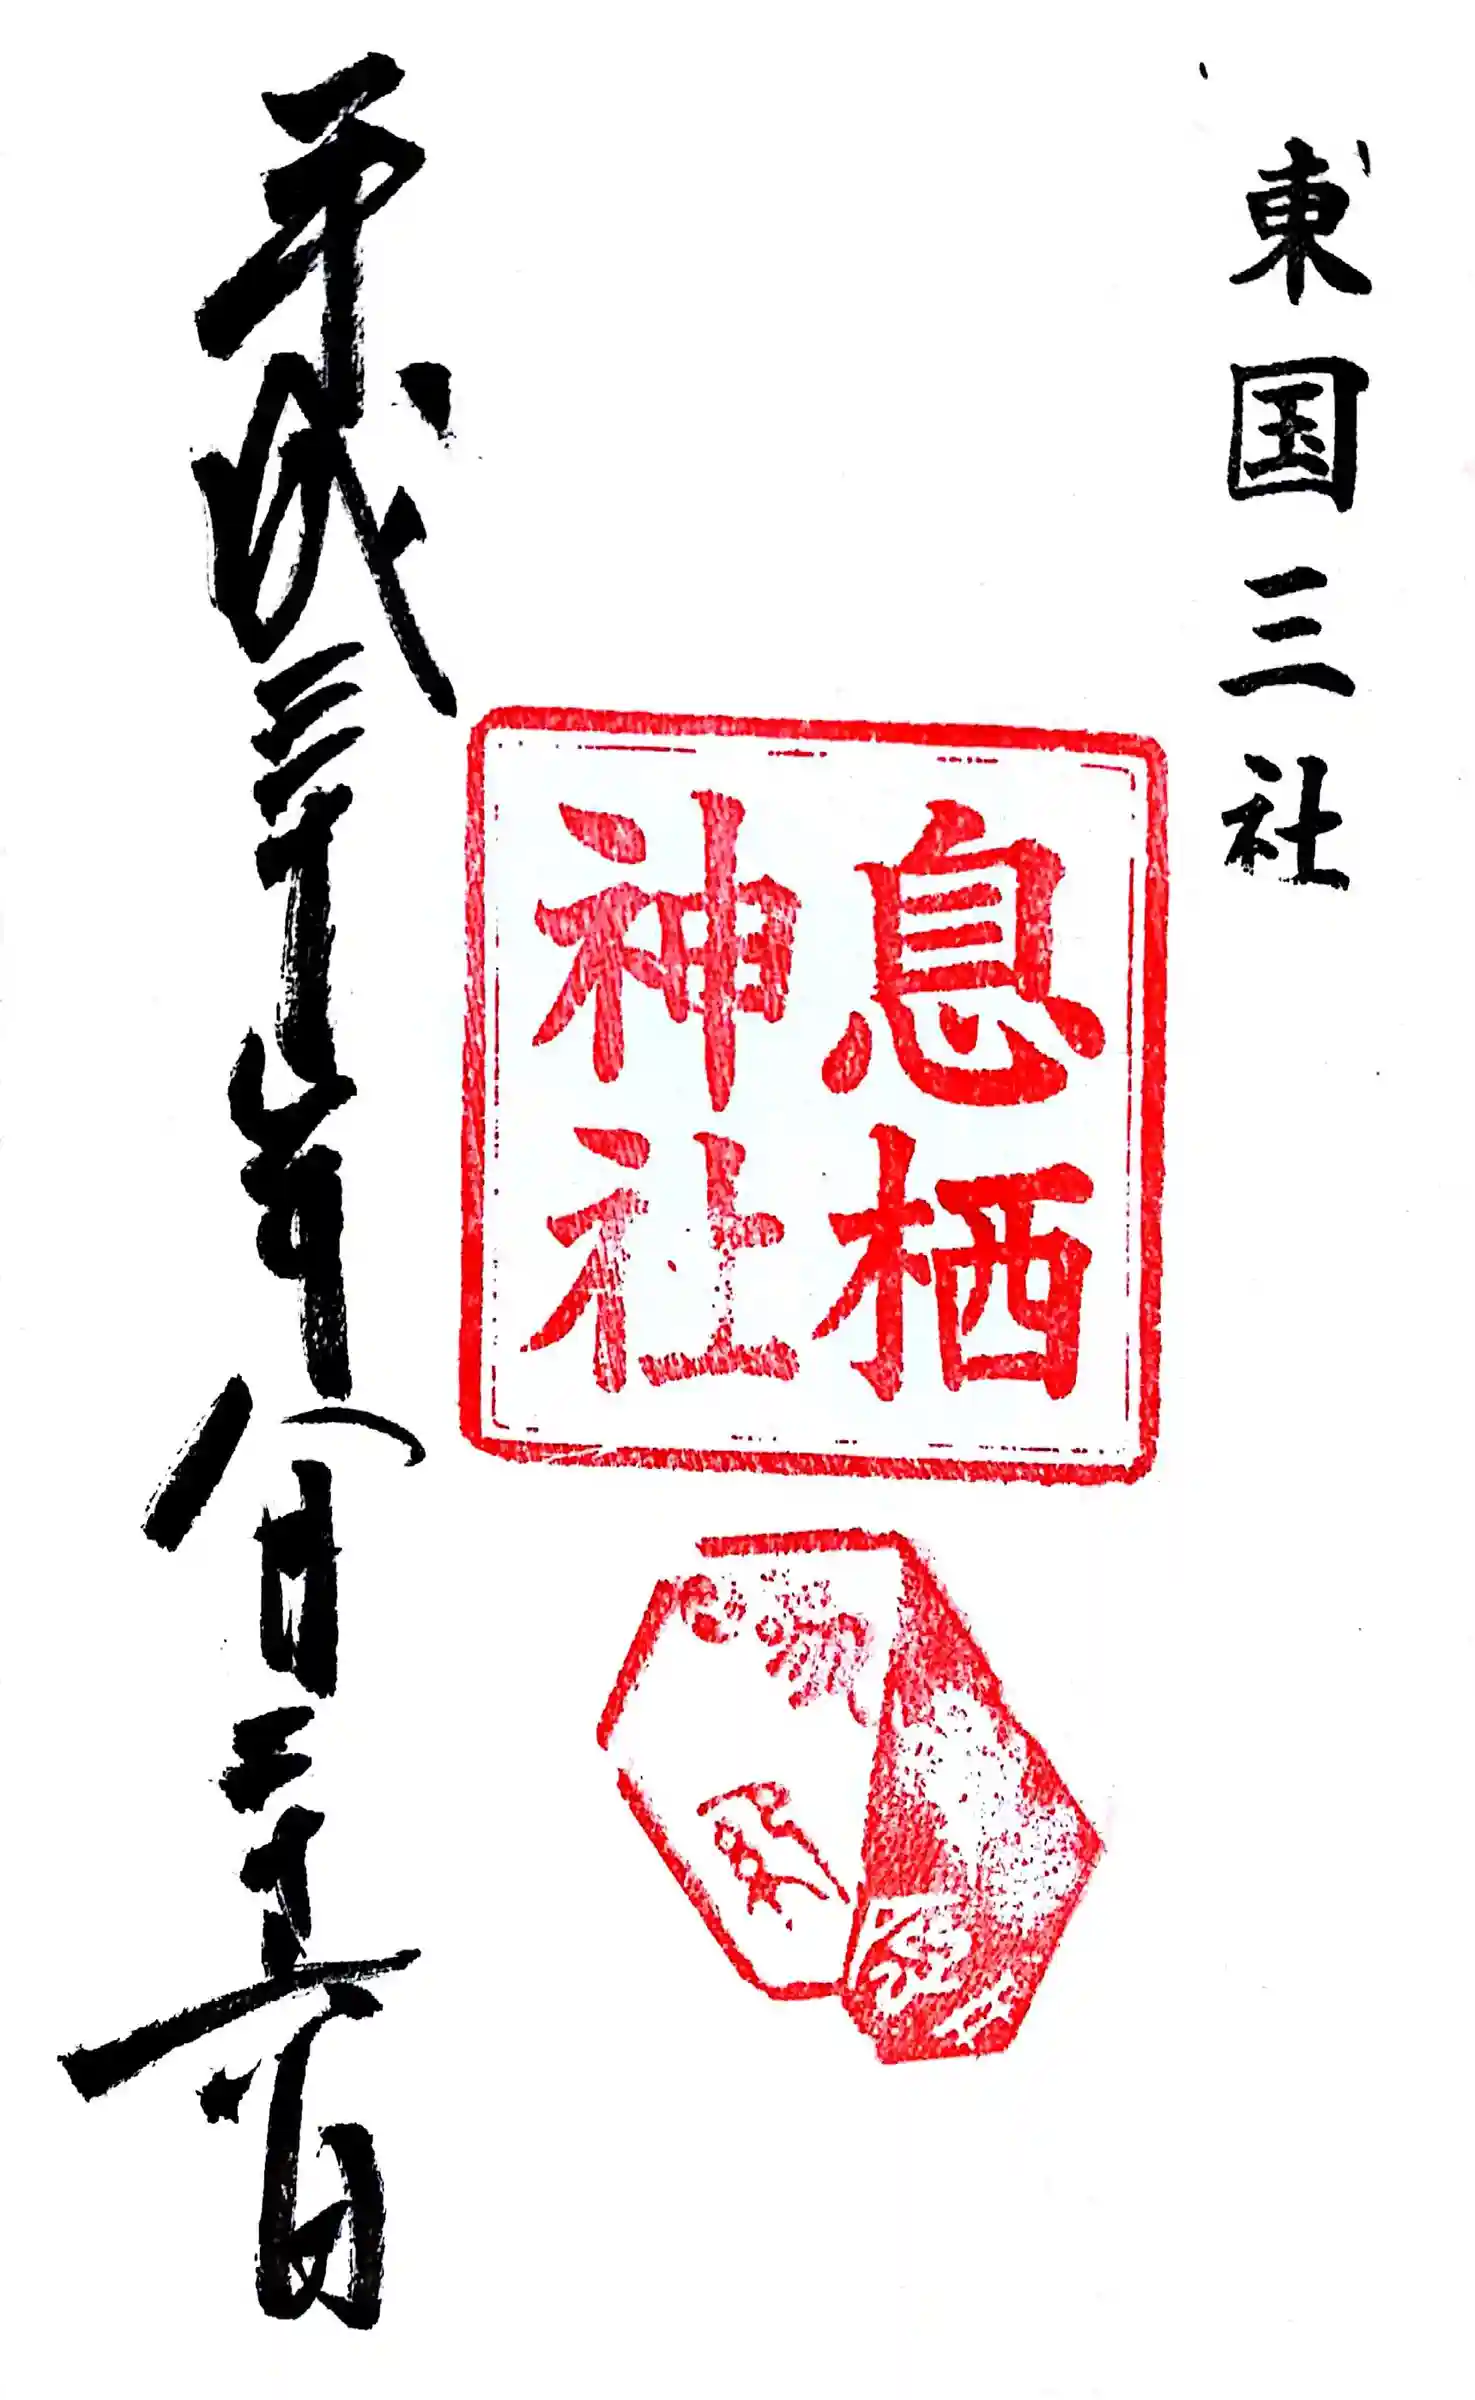 東国三社
息栖
神社
平成三十年八月二十六日